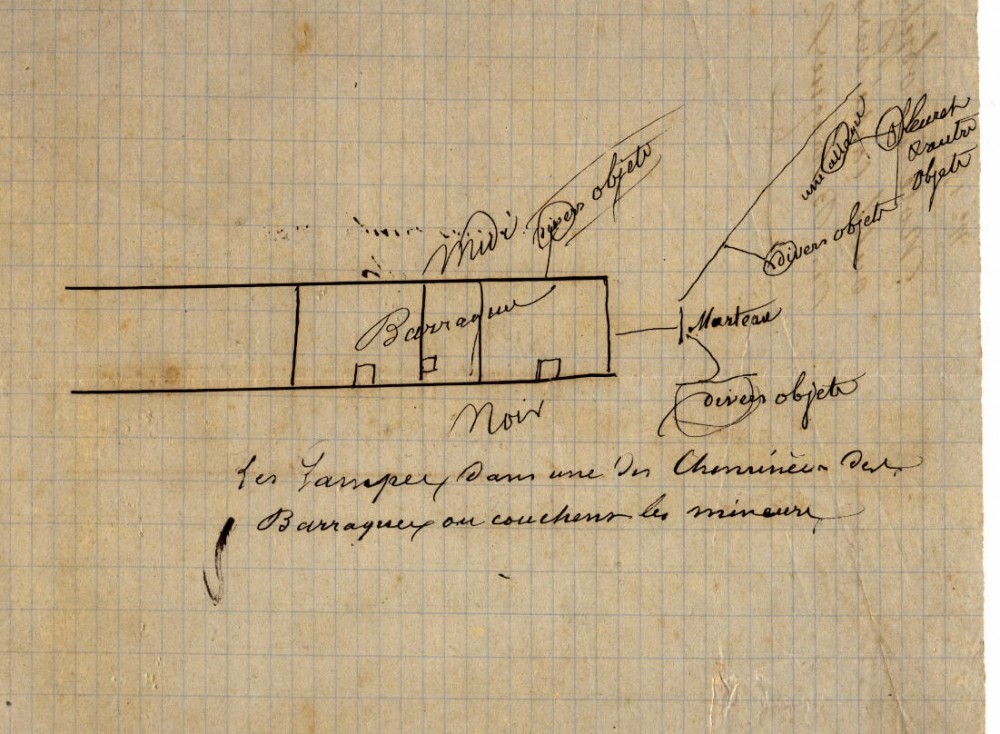 Midi
divers objets
une attaque
fleuret
& autre
objets
divers objets
Barraque
Marteau
divers objets
Noir
Les Lampes, dans une des Cheminées des
Barraques ou couchent les mineurs